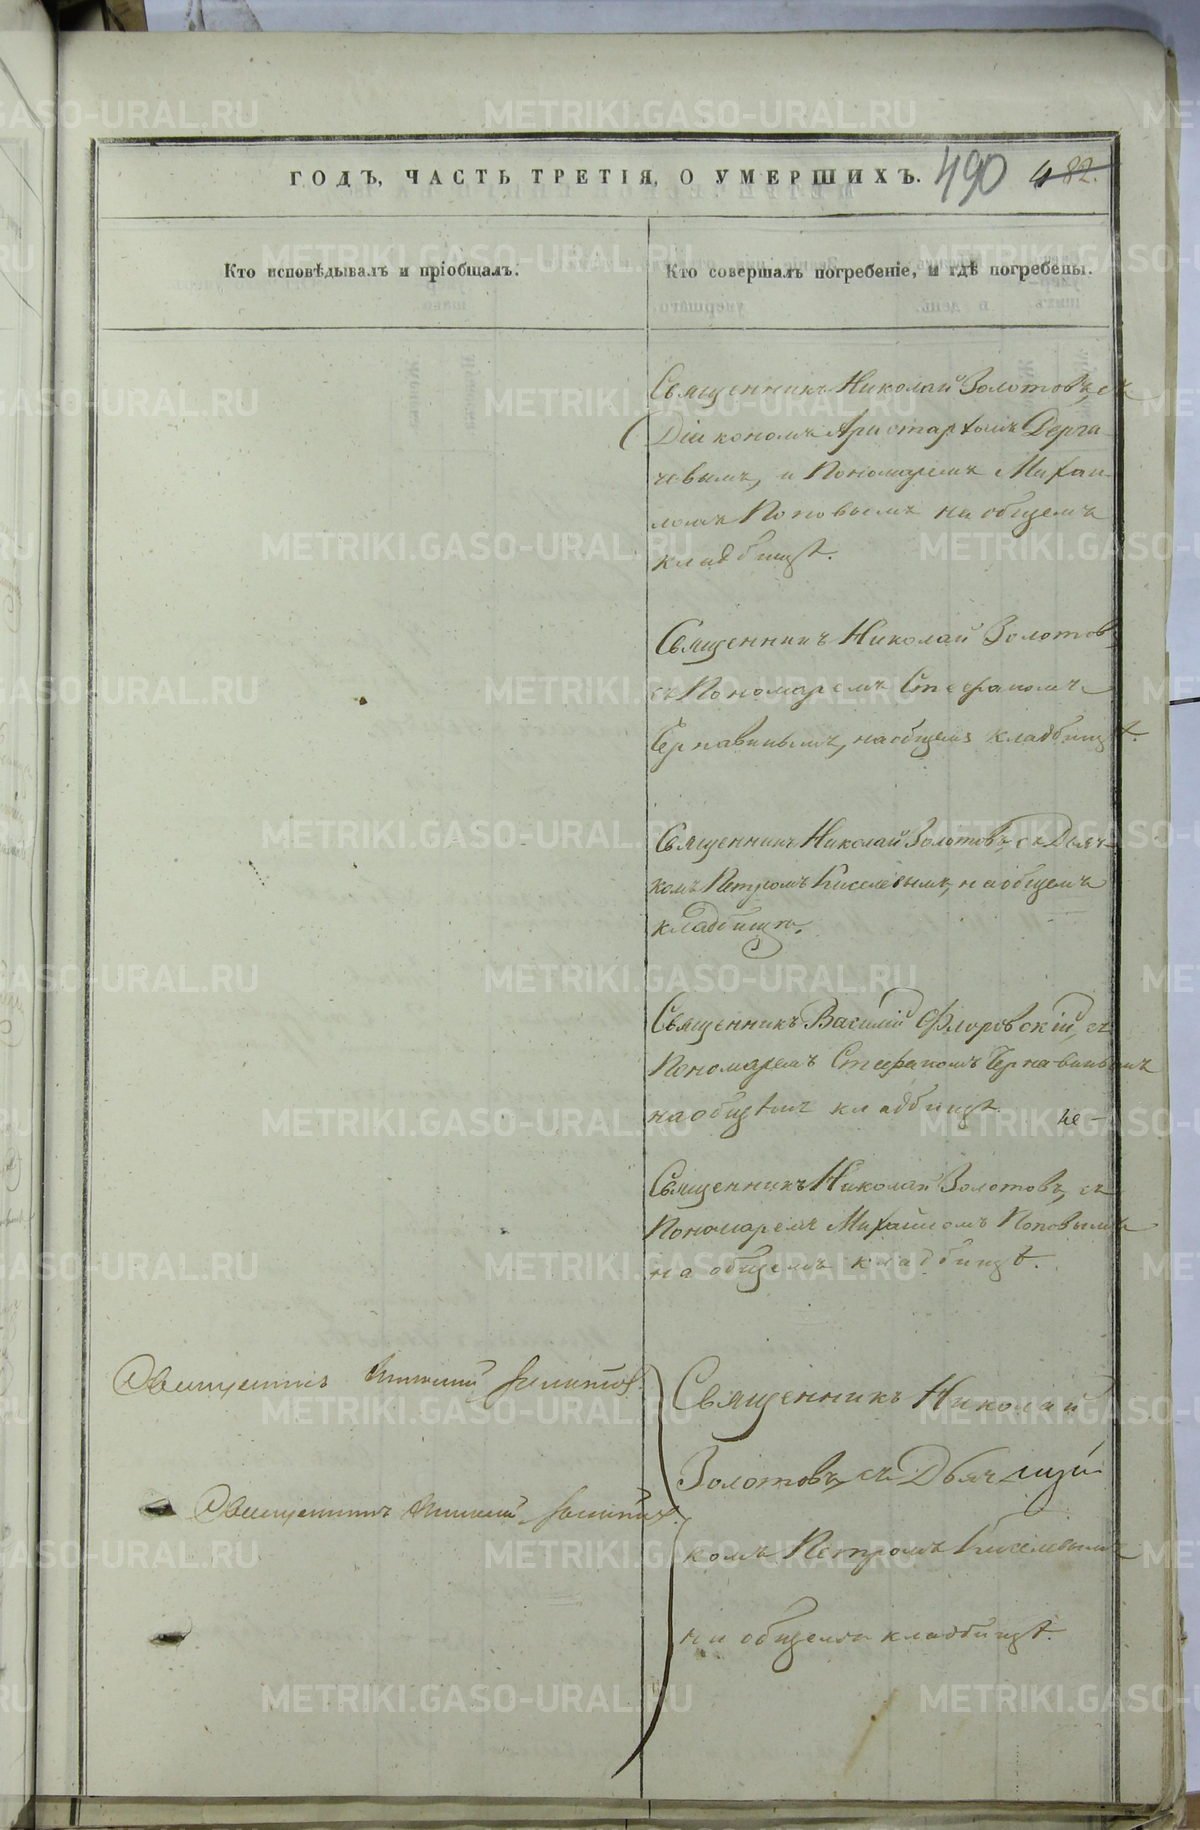 ГОДЪ, ЧАСТЬ ТРЕТІЯ, О УМЕРШИХЪ. 490 482.
Кто исповѣдывалъ и пріобщалъ.
Кто совершалъ погребеніе, и гдѣ погребены.
Священникъ Николай Золотовъ, съ
Діакономъ Аристархомъ Дерга-
чевымъ, и Пономаремъ Михаи-
ломъ Поповымъ на общемъ
кладбищѣ.
Священникъ Николай Золотовъ
съ Пономаремъ Стефаномъ
Чернавинымъ, на общемъ кладбищѣ.
Священникъ Николай Золотовъ, съ Дьяч-
комъ Петромъ Киселевымъ, на общемъ
кладбищѣ.
Священникъ Василій Флоровскій, съ
Пономаремъ Стефаномъ Чернавинымъ
на общемъ кладбищѣ.
Священникъ Николай Золотовъ, съ
Пономаремъ Михайломъ Поповымъ
на общемъ кладбищѣ.
Священникъ Николай Золотовъ
Священникъ Николай
Золотовъ, съ Дьяч
Священникъ Николай Золотовъ
комъ Петромъ Киселевымъ
на общемъ кладбищѣ.
METRIKI.GASO-URAL.RU